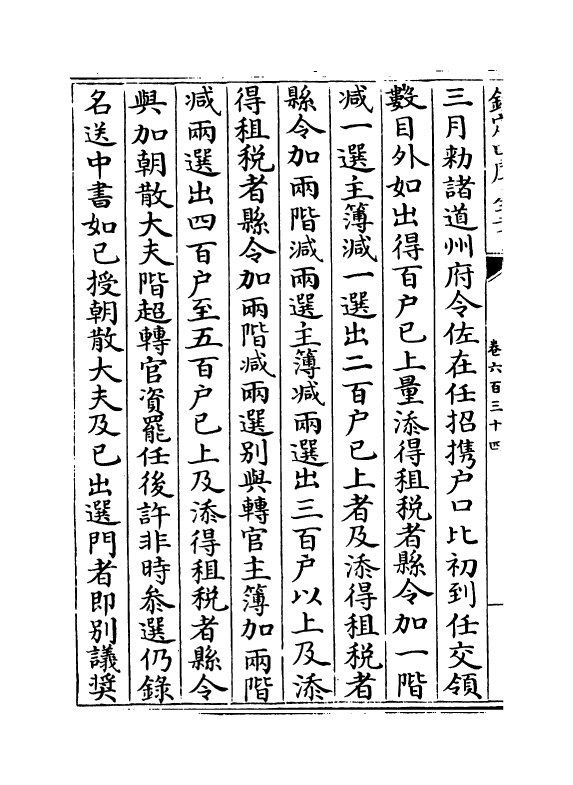 三月勅諸道州府令佐在任招携户口比初到任交領
數目外如出得百户已上量添得租税者縣令加一階
减一選主簿减一選出二百户已上者及添得租税者
縣令加兩階减兩選主簿减兩選出三百户以上及添
得租税者縣令加兩階减兩選别與轉官主簿加兩階
减兩選出四百户至五百户已上及添得租税者縣令
與加朝散大夫階超轉官資罷任後許非時叅選仍錄
名送中書如已授朝散大夫及已出選門者即别議奬
卷六百三十四